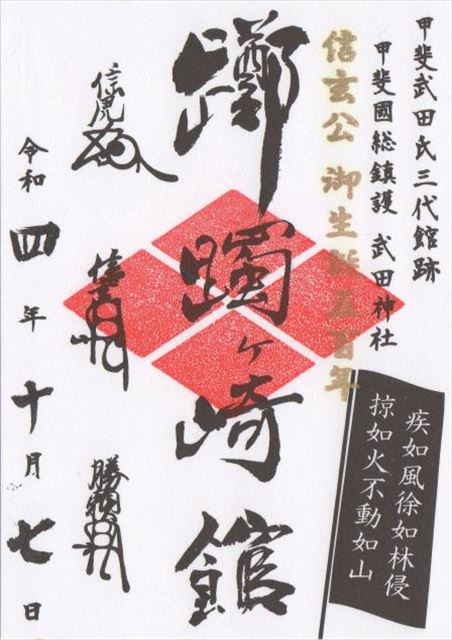 甲斐武田氏三代館跡
甲斐國総鎮護 武田神社
信玄公 御生誕五百年
疾如風徐如林侵
掠如火不動如山
躑躅ヶ崎館
信虎
信玄
勝頼
令和四年十月七日